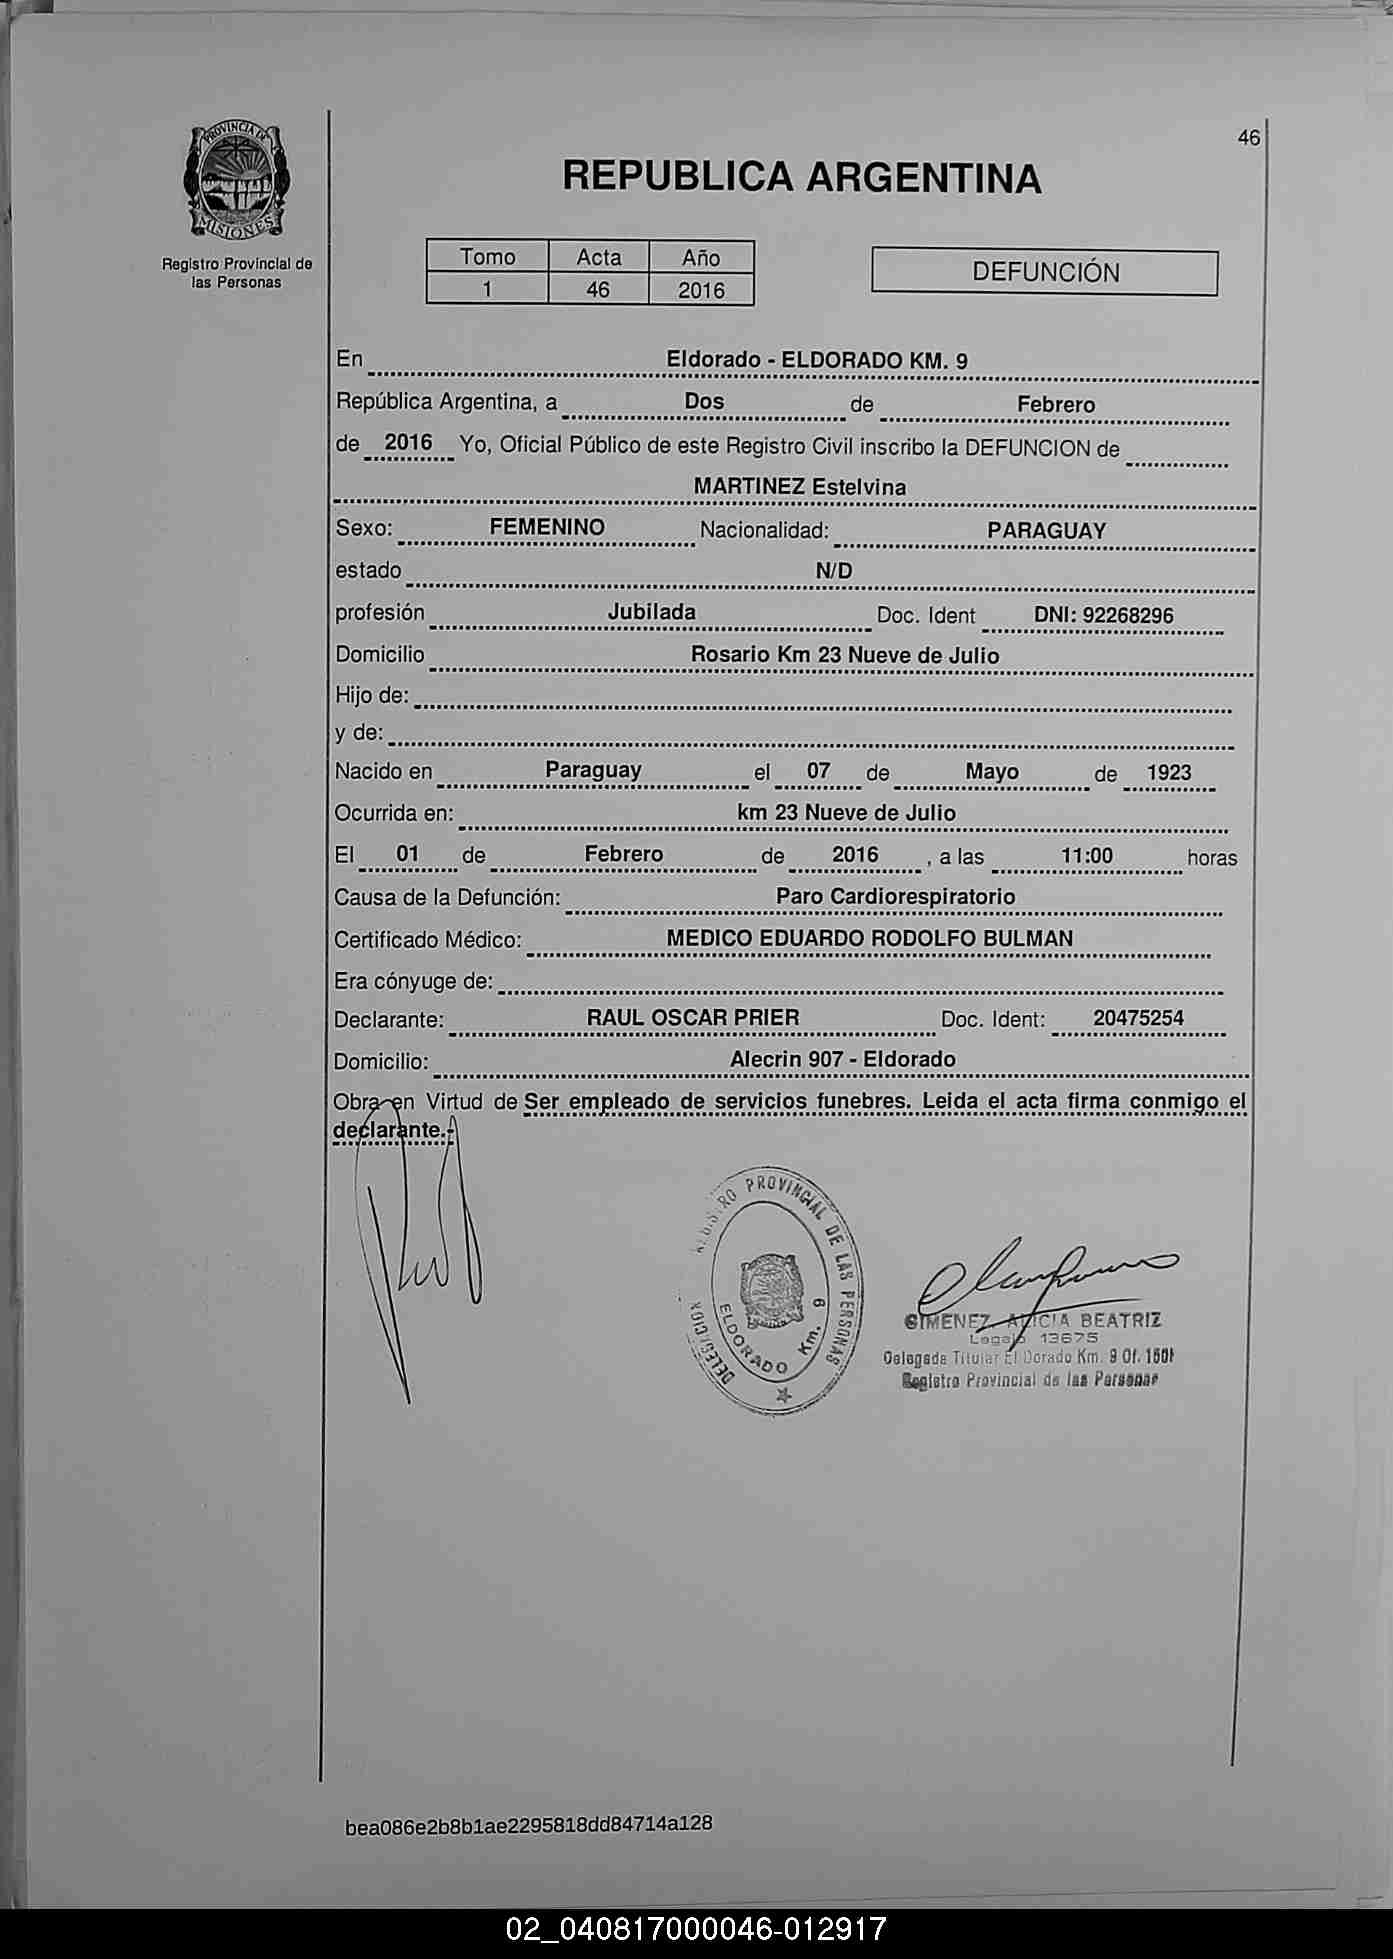 46
PROVINCIA DE
MISIONES
Registro Provincial de
las Personas
REPUBLICA ARGENTINA
Tomo Acta Año
1 46 2016
DEFUNCIÓN
En Eldorado - ELDORADO KM. 9
República Argentina, a Dos de Febrero
de 2016 Yo, Oficial Público de este Registro Civil inscribo la DEFUNCION de
MARTINEZ Estelvina
Sexo: FEMENINO Nacionalidad: PARAGUAY
estado N/D
profesión Jubilada Doc. Ident DNI: 92268296
Domicilio Rosario Km 23 Nueve de Julio
Hijo de:
y de:
Nacido en Paraguay el 07 de Mayo de 1923
Ocurrida en: km 23 Nueve de Julio
El 01 de Febrero de 2016 , a las 11:00 horas
Causa de la Defunción: Paro Cardiorespiratorio
Certificado Médico: MEDICO EDUARDO RODOLFO BULMAN
Era cónyuge de:
Declarante: RAUL OSCAR PRIER Doc. Ident: 20475254
Domicilio: Alecrin 907 - Eldorado
Obra en Virtud de Ser empleado de servicios funebres. Leida el acta firma conmigo el
declarante.-
REGISTRO PROVINCIAL DE LAS PERSONAS
ELDORADO Km. 9
GIMENEZ, ALICIA BEATRIZ
Legajo 13675
Delegada Titular El Dorado Km. 9 Of.
Registro Provincial de las Personas
bea086e2b8b1ae2295818dd84714a128
02_040817000046-012917